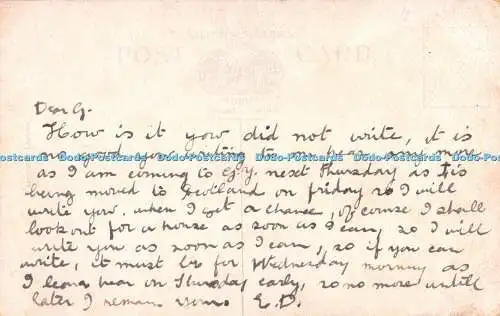 POST CARD
Dear G.
How is it yow did not write, it is
no good you writing to me hear any more
as I am coming to next Thursday as
being moved to Scotland on friday so I will
write yow. when I get a chance, of corse I shall
look out for a horse as soon as I can, so I will
write you as soon as I can, so if you can
write, it must be for Wednesday morning as
I leave hear on Thursday early, so no more untill
later I remain yours E.D.
Dodo-Postcards Dodo-Postcards Dodo-Postcards Dodo-Postcards Dodo-Postcards Dodo-Postcards